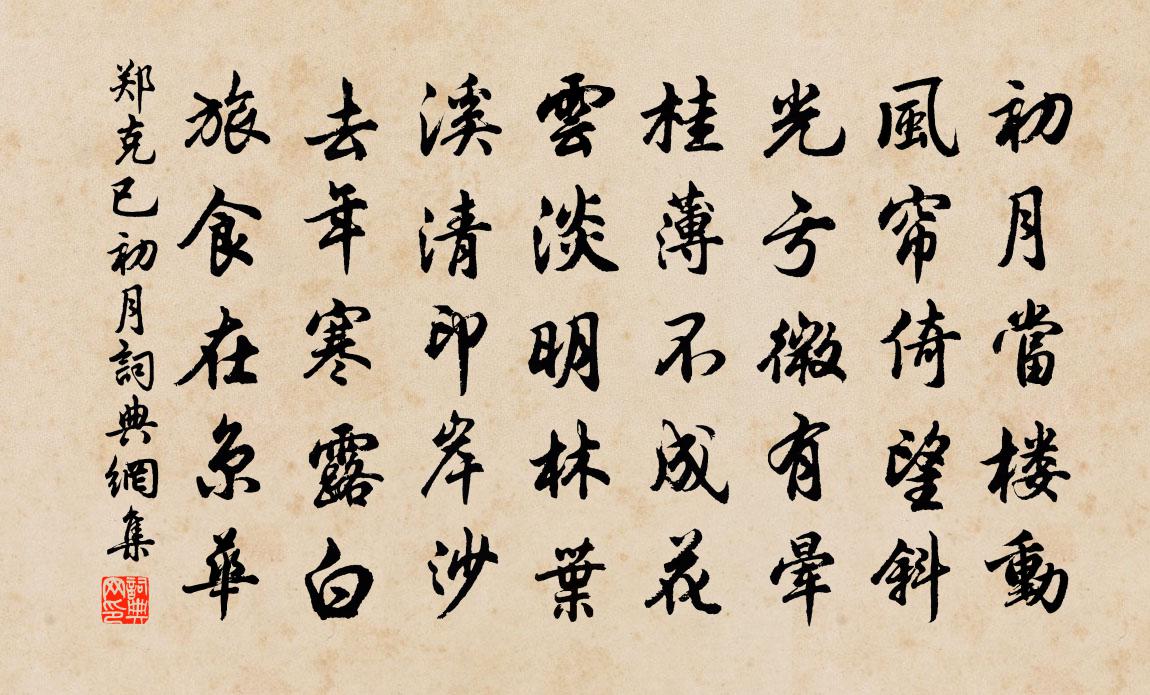 初月當楼動
風帘倚望斜
光亏微有暈
桂薄不成花
雲淡明林葉
溪清印岸沙
去年寒露白
旅食在京華
郑克已初月詞典網集
詞典网印